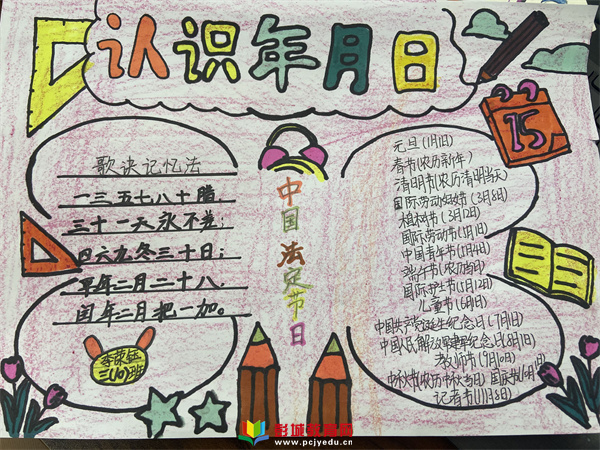 认识年月日
15
歌诀记忆法
一三五七八十腊,
三十一天永不差;
四六九冬三十日;
平年二月二十八,
闰年二月把一加。
三(10)班
中国法定节日
元旦(1月1日)
春节(农历新年)
清明节(农历清明当天)
国际劳动妇女节(3月8日)
植树节(3月12日)
国际劳动节(5月1日)
中国青年节(5月4日)
端午节(农历当日)
国际护士节(5月12日)
儿童节(6月1日)
中国共产党诞生纪念日(7月1日)
中国人民解放军建军纪念日(8月1日)
教师节(9月10日)
中秋节(农历中秋当日) 国庆节
记者节(11月8日)
www.pcjyedu.cn